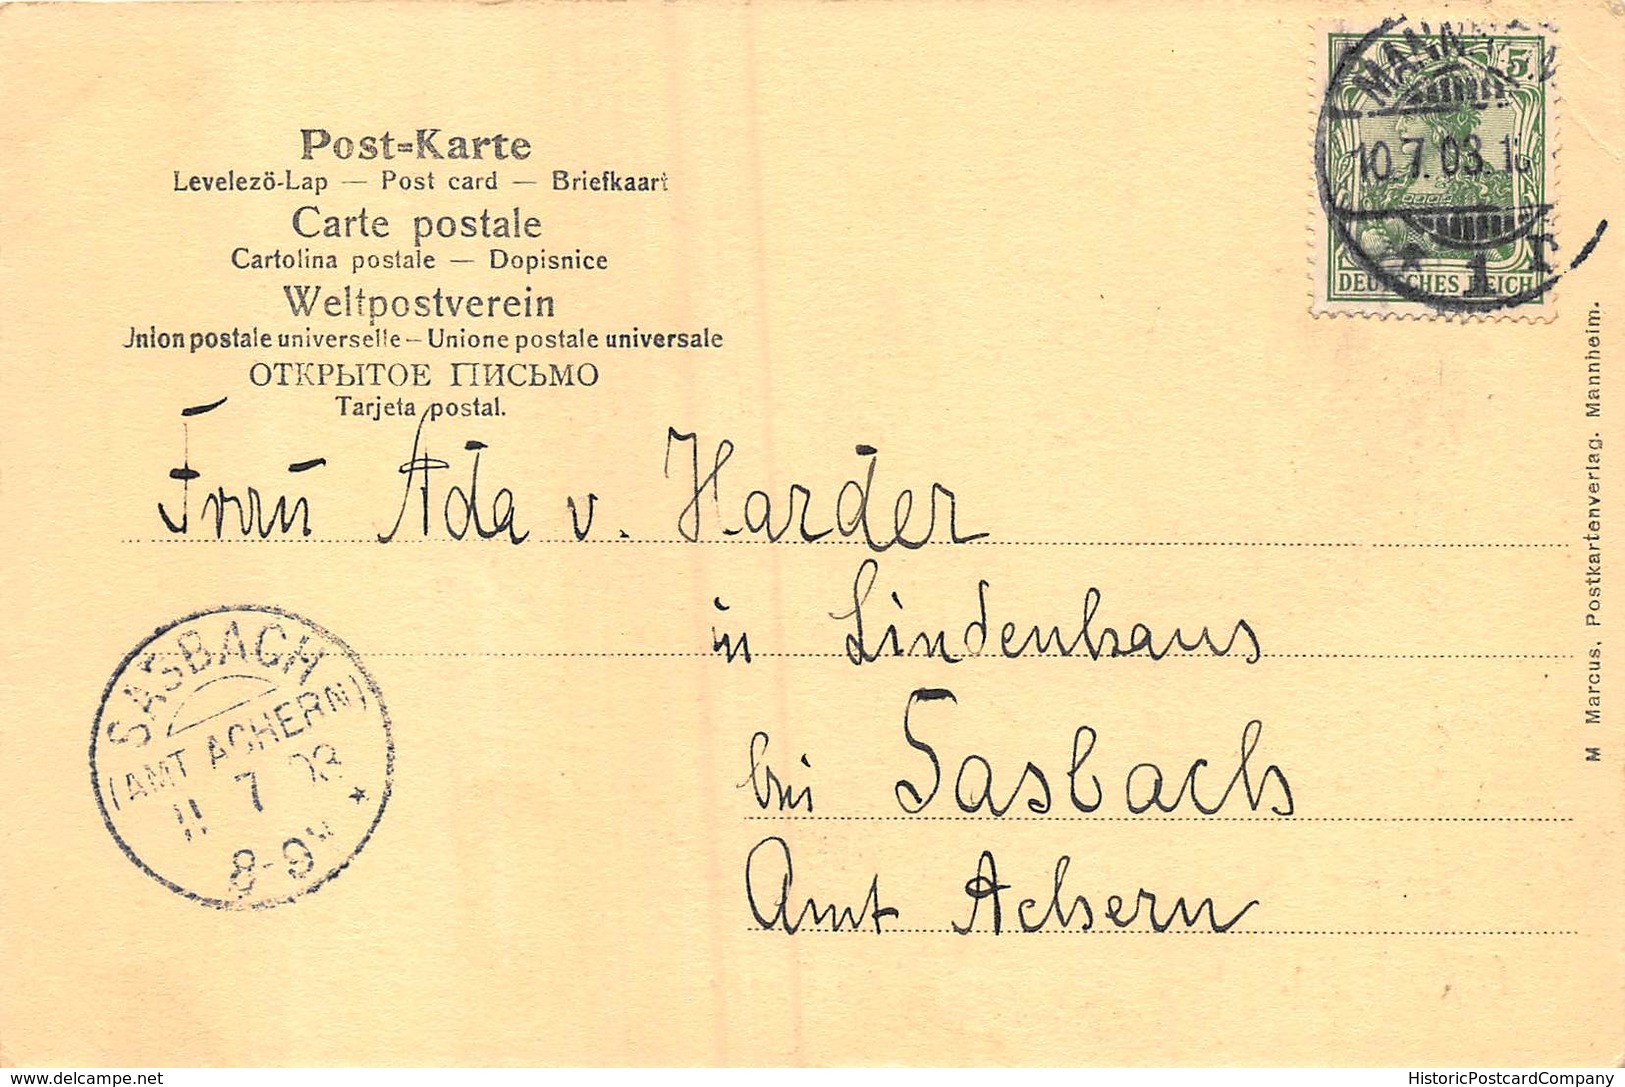 Post=Karte
Levelezö-Lap — Post card — Briefkaart
Carte postale
Cartolina postale — Dopisnice
Weltpostverein
Union postale universelle — Unione postale universale
ОТКРЫТОЕ ПИСЬМО
Tarjeta postal.
5
10.7.03.
* 1 r
DEUTSCHES REICH
Frau Ada v. Harder
in Lindenhaus
bei Sasbach
Amt Achern
SASBACH
(AMT ACHERN)
11 7 03
8-9V
*
M Marcus, Postkartenverlag. Mannheim.
delcampe.net
HistoricPostcardCompany